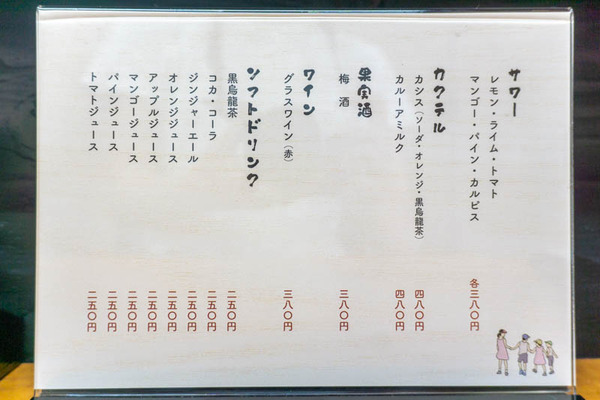 サワー
レモン・ライム・トマト
マンゴー・パイン・カルピス 各三八〇円
カクテル
カシス(ソーダ・オレンジ・黒烏龍茶) 四八〇円
カルーアミルク 四八〇円
果実酒
梅酒 三八〇円
ワイン
グラスワイン(赤) 三八〇円
ソフトドリンク
黒烏龍茶 二五〇円
コカ・コーラ 二五〇円
ジンジャーエール 二五〇円
オレンジジュース 二五〇円
アップルジュース 二五〇円
マンゴージュース 二五〇円
パインジュース 二五〇円
トマトジュース 二五〇円